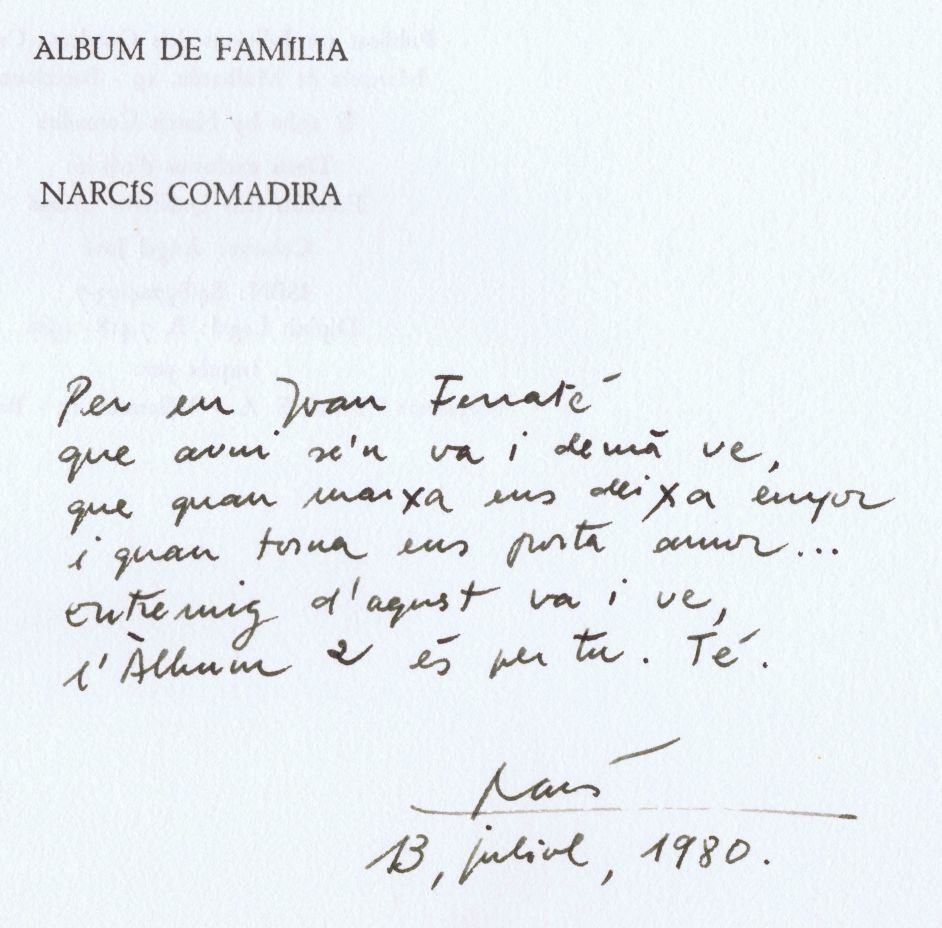 ÀLBUM DE FAMÍLIA
NARCÍS COMADIRA
Per en Joan Ferraté
que avui se'n va i demà ve,
que quan marxa ens deixa enyor
i quan torna ens porta amor...
entremig d'aquest va i ve,
l'Àlbum 2 és per tu. Té.
Narcís
13, juliol, 1980.